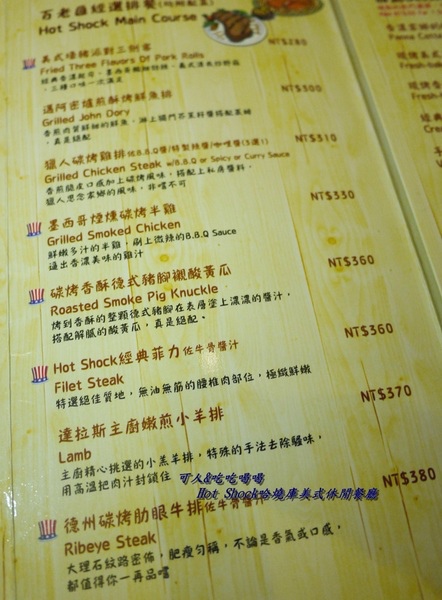 百老匯經選排餐(附湯飲品)
Hot Shock Main Course
NT$280
美式嗆豬派對三劍客
Fried Three Flavors Of Pork Rolls
三種口味一次滿足
NT$300
邁阿密爐煎酥烤鮮魚排
Grilled John Dory
香煎肉質鮮甜的鮮魚，淋上獨門芥茉籽醬搭配蒸絕
，真是絕配
NT$310
獵人碳烤雞排佐B.B.Q醬/特製辣醬/咖哩醬(3選1)
Grilled Chicken Steak w/B.B.Q or Spicy or Curry Sauce
香煎脆皮口感加上碳烤風味，搭配上私房醬料，
獵人思念家鄉的風味，非嚐不可
NT$330
墨西哥煙燻碳烤半雞
Grilled Smoked Chicken
鮮嫩多汁的半雞，刷上微辣的B.B.Q Sauce
逼出香濃美味的雞汁
NT$360
碳烤香酥德式豬腳襯酸黃瓜
Roasted Smoke Pig Knuckle
烤到香酥的整顆德式豬腳在表層塗上濃濃的醬汁，
搭配解膩的酸黃瓜，真是絕配。
NT$360
Hot Shock經典菲力佐牛骨醬汁
Filet Steak
特選絕佳質地，無油無筋的腰椎肉部位，極緻鮮嫩
NT$370
達拉斯主廚嫩煎小羊排
Lamb
主廚精心挑選的小羔羊排，特殊的手法去除騷味，
用高溫把肉汁封鎖住
可人&吃吃喝喝
Hot Shock哈燒庫美式休閒餐廳
NT$380
德州碳烤肋眼牛排佐牛骨醬汁
Ribeye Steak
大理石紋路密佈，肥瘦勻稱，不論是香氣或口感，
都值得你一再品嚐